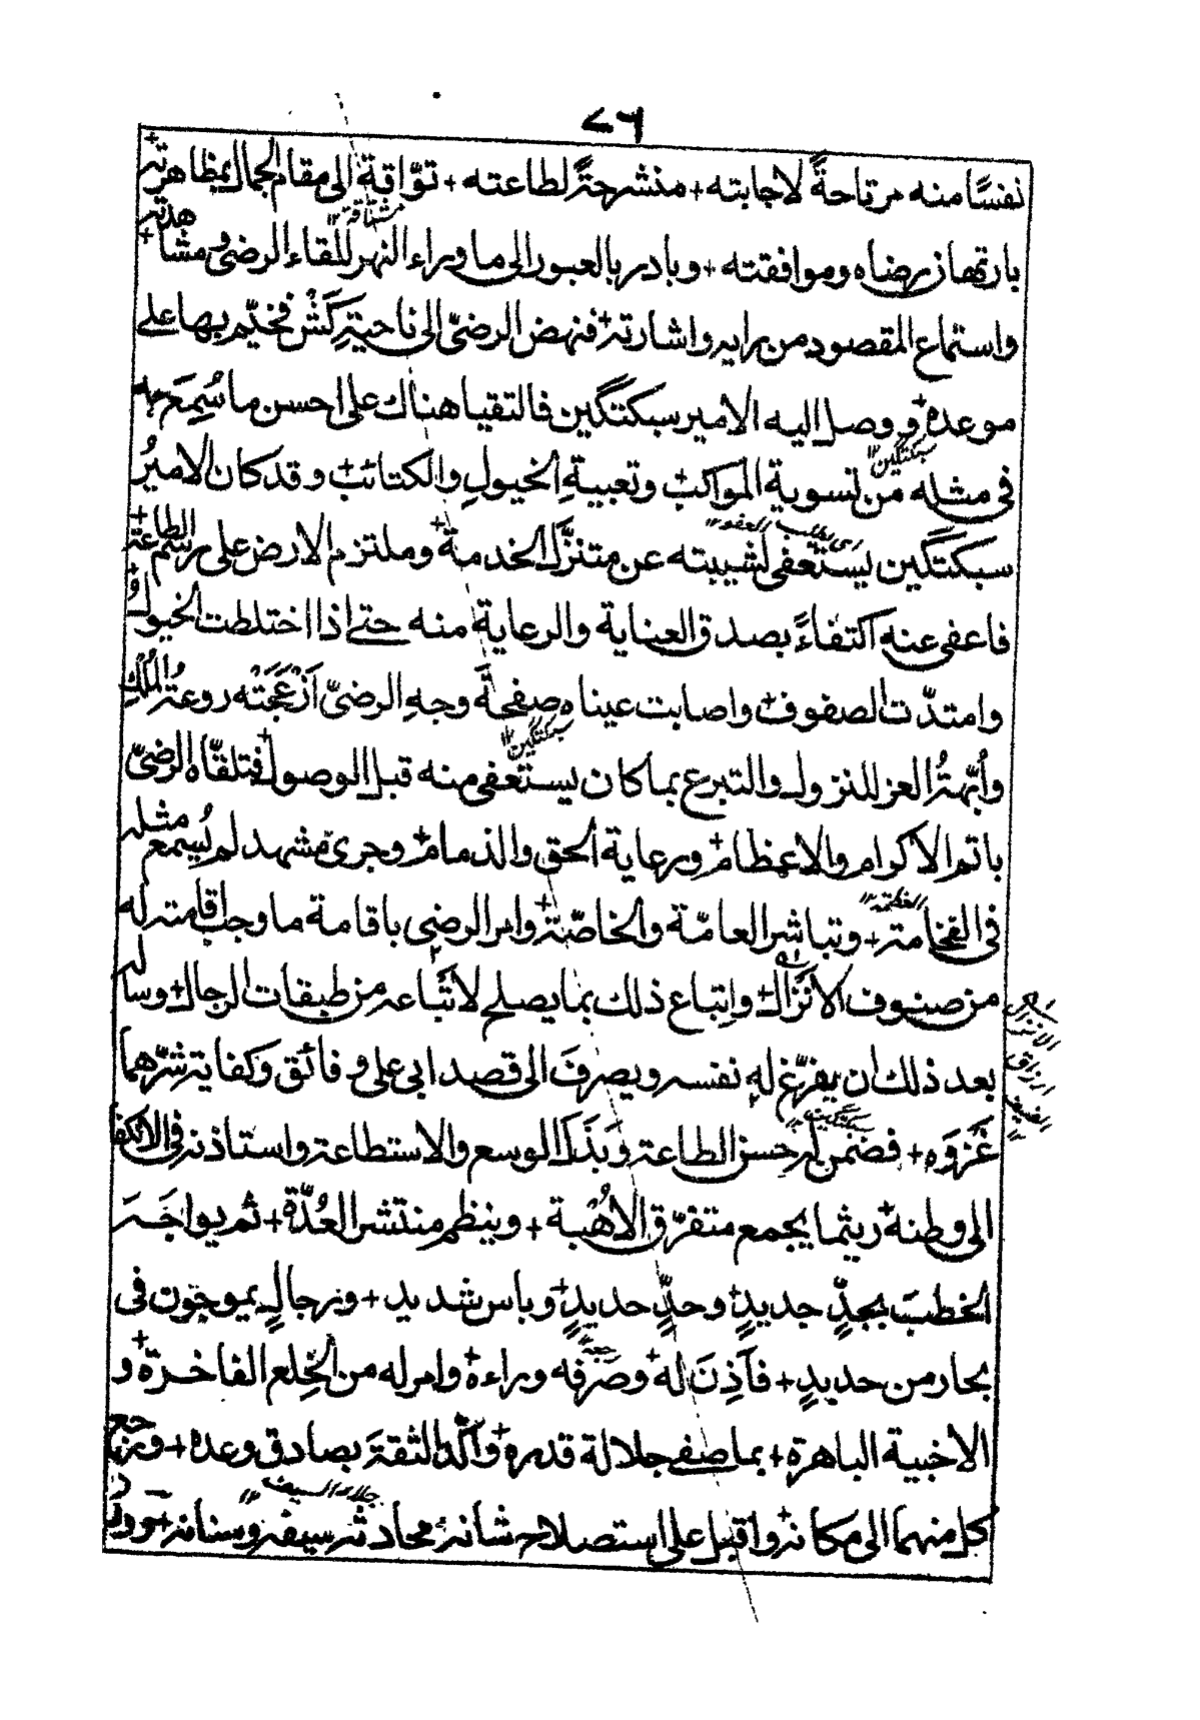 ٧٦
نفسًا منه مرتاحةً لاجابته + منشرحةً لطاعته + توّاقة الى مقام الجمال بمظاهرته +
مشتاقة ١٢
بارتهان رضاه وموافقته + وبادر بالعبور الى ما وراء النهر للقاء الرضى ومشاهدته +
واستماع المقصود من رايه واشارته + فنهض الرضىّ الى ناحية كَشْ فخيّم بها على
موعده + ووصل اليه الامير سبكتگين فالتقيا هناك على احسن ما سُمِعَ به
سبكتگين ١٢
فى مثله من تسوية المواكب + وتعبية الخيولِ والكتائب + وقد كان الاميرُ
اى يطلب العفو ١٢
سبكتگين يستعفى لشيبته عن متنزَّل الخدمة + وملتزم الارض على رسم الطاعة +
فاعفى عنه اكتفاءً بصدق العناية والرعاية منه حتى اذا اختلطت الخيول و
وامتدّت الصفوف + واصابت عيناه صفحةَ وجهِ الرضىّ ازْعَجَتْه روعةُ المُلْكِ
سبكتگين ١٢
وأُبّهةُ العز للنزول والتبرع بما كان يستعفى منه قبل الوصول + فتلقّاه الرضىّ
باتم الاكرام والاعظام + ورعاية الحق والذمام + وجرى مشهد لم يُسمع مثله
العظمة ١٢
فى الفخامة + وتباشر العامّة والخاصّة + وامر الرضى باقامة ما وجب اقامته له
من صنوف الانزال + واِتباع ذلك بما يصلح لاتّباعه من طبقات الرجال + وساله
الانزال
ارزاق
الضيف ١٢
بعد ذلك ان يفرّغ له نفسه ويصرفَ الى قصد ابى على و فائق وكفاية شرّهما
سبكتگين ١٢
غَزوَه + فضمن له حسن الطاعة وبَذَل الوسع والاستطاعة واستاذنه فى الانكفا
الى وطنه + ريثما يجمع متفرّق الاُهْبة + وينظم منتشر العُدّة + ثم يواجَه
الخطبَ بجدٍّ جديدٍ + وحدٍّ حديدٍ + وباس شديد + ورجالٍ يموجون فى
بحار من حديدٍ + فآذِنَ له + وصرفه وراءه + وامر له من الخِلع الفاخرة + و
الاخبية الباهرة + بما ضفى جلالة قدره + وآكّد الثقة بصادق وعده + ورجع
جلاء السيف ١٢
كل منهما الى مكانه + واقبل على استصلاح شانه محادثة سيفه وسنانه +